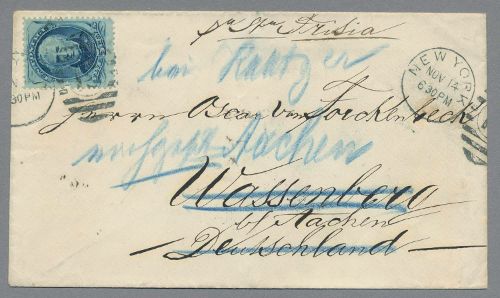 per Str Frisia
NEW YORK
NOV 14
630PM
30PM
bei
Herrn Oscar von Forckenbeck
Aachen
Wassenberg
b/Aachen
Deutschland